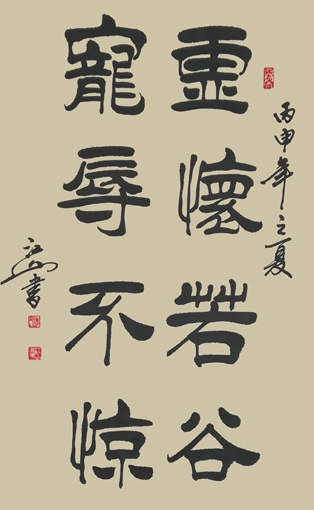 丙申年之夏
虚懷若谷
寵辱不惊
江山書